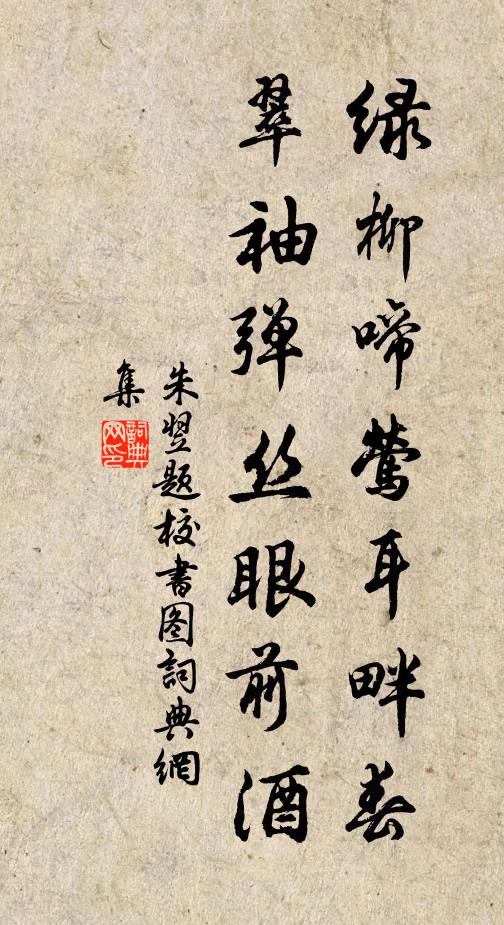 绿柳啼莺耳畔春
翠袖弹丝眼前酒
朱翌题校书图词典網
集
詞典
网印